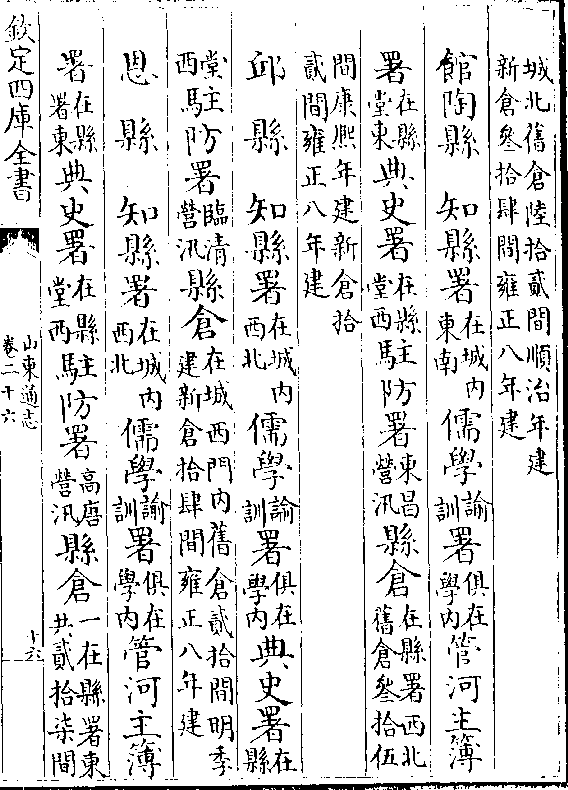 城北舊倉陸拾貳間順治年建
新倉叁拾肆間雍正八年建
館陶縣 知縣署在城内東南儒學諭訓署俱在學内管河主簿
署在縣堂東典史署在縣堂西駐防署東昌營汛縣倉在縣署西北舊倉叁拾伍
間康熙年建新倉拾
貳間雍正八年建
邱縣 知縣署在城内西北儒學諭訓署俱在學内典史署在縣
堂西駐防署臨清營汛縣倉在城西門内舊倉貳拾間明季建新倉拾肆間雍正八年建
恩縣 知縣署在城内西北儒學諭訓署俱在學内管河主簿
署在縣署東典史署在縣堂西駐防署高唐營汛縣倉一在縣署東共貳拾柒間
欽定四庫全書
山東通志
卷二十六
十六